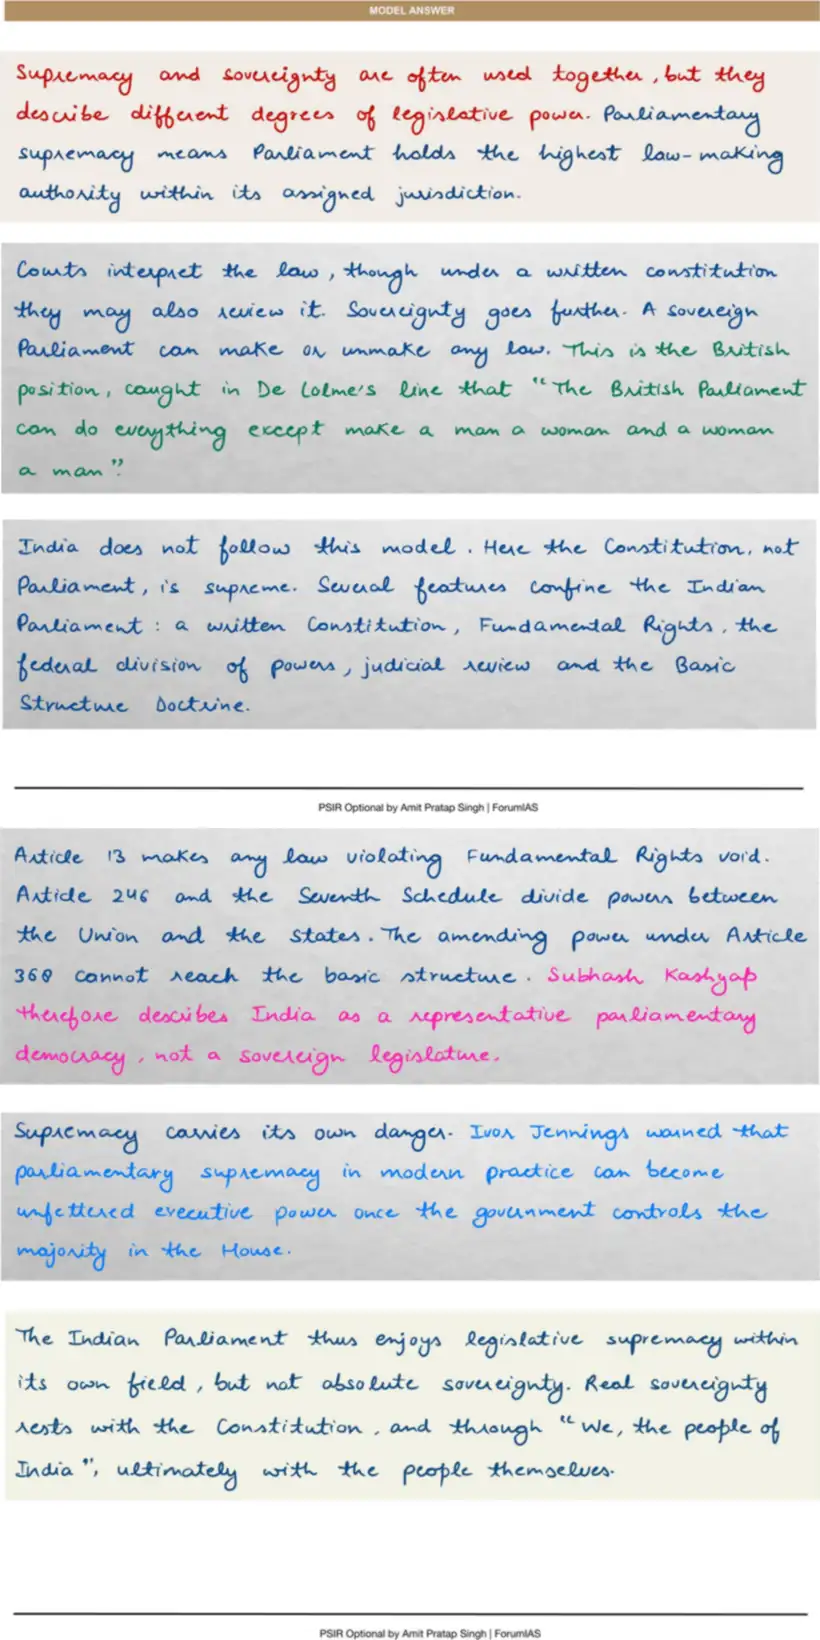 MODEL ANSWER
Supremacy and sovereignty are often used together, but they
describe different degrees of legislative power. Parliamentary
supremacy means Parliament holds the highest law-making
authority within its assigned jurisdiction.
Courts interpret the law, though under a written constitution
they may also review it. Sovereignty goes further. A sovereign
Parliament can make or unmake any law. This is the British
position, caught in De Lolme's line that "The British Parliament
can do everything except make a man a woman and a woman
a man".
India does not follow this model. Here the Constitution, not
Parliament, is supreme. Several features confine the Indian
Parliament: a written Constitution, Fundamental Rights, the
federal division of powers, judicial review and the Basic
Structure Doctrine.
PSIR Optional by Amit Pratap Singh | ForumIAS
Article 13 makes any law violating Fundamental Rights void.
Article 246 and the Seventh Schedule divide powers between
the Union and the States. The amending power under Article
368 cannot reach the basic structure. Subhash Kashyap
therefore describes India as a representative parliamentary
democracy, not a sovereign legislature.
Supremacy carries its own danger. Ivor Jennings warned that
parliamentary supremacy in modern practice can become
unfettered executive power once the government controls the
majority in the House.
The Indian Parliament thus enjoys legislative supremacy within
its own field, but not absolute sovereignty. Real sovereignty
rests with the Constitution, and through "We, the people of
India", ultimately with the people themselves.
PSIR Optional by Amit Pratap Singh | ForumIAS